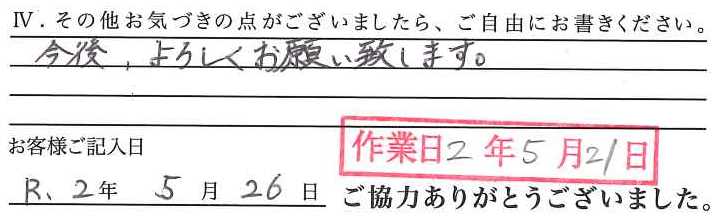 Ⅳ．その他お気づきの点がございましたら、ご自由にお書きください。
今後，よろしくお願い致します。
お客様ご記入日
作業日2年5月21日
R、2年 5月26日
ご協力ありがとうございました。